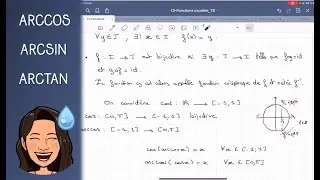 ARCCOS
ARCSIN
ARCTAN
13-Fonctions usuelles_TD
∀y∈J, ∃! x ∈ I f(x) = y.
f: I → J est bijective si ∃ g: J → I telle que fog=id
et gof=id.
La fonction g est alors appelée fonction réciproque de f et notée f⁻¹
On considère cos: ℝ → [-1,1]
cos: [0,π] → [-1,1] bijective
arccos: [-1,1] → [0,π]
cos(arccos x) = x ∀x ∈ [-1,1]
arccos(cos x) = x ∀x ∈ [0,π]